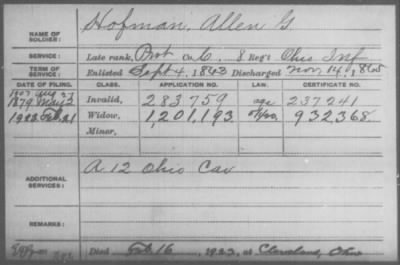 NAME OF SOLDIER: Hofman, Allen G
SERVICE: Late rank, Pvt Co. C, 8 Reg't Ohio Inf
TERM OF SERVICE: Enlisted Sept 4, 1862 Discharged Nov 14, 1865
DATE OF FILING. CLASS. APPLICATION NO. LAW. CERTIFICATE NO.
1907 Aug 27
1879 May 2 Invalid, 283.759 age 237241
1922 Feb. 21 Widow, 1,201,193 932,368
Minor,
ADDITIONAL SERVICES: A. 12 Ohio Cav
REMARKS:
Died Feb. 16, 1922, at Cleveland, Ohio